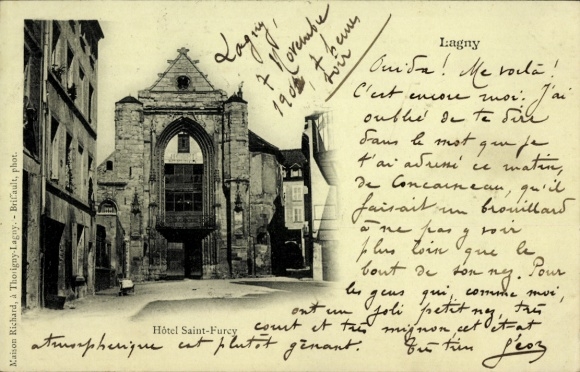 Lagny
Lagny,
7 Novembre
190
7 heures
soir
Oui da ! Me voilà !
C'est encore moi. J'ai
oublié de te dire
dans le mot que je
t'ai adressé ce matin,
de Concarneau, qu'il
faisait un brouillard
à ne pas y voir
plus loin que le
bout de son nez. Pour
les gens qui, comme moi,
ont un joli petit nez, très
court et très mignon cet état
atmospherique est plutôt gênant.
Hôtel Saint-Furcy
Maison Richard, à Thorigny-Lagny. - Brificault, phot.